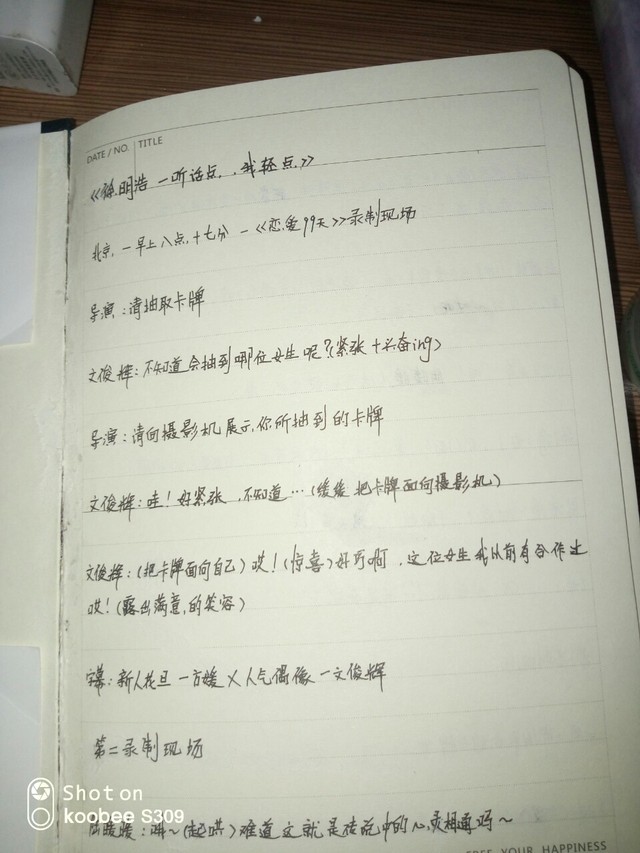 DATE / NO. TITLE
《徐明浩 一听话点，我轻点》
北京，一早上八点，十七分 一《恋爱99天》录制现场
导演：请抽取卡牌
文俊辉：不知道会抽到哪位女生呢？(紧张＋兴奋ing)
导演：请向摄影机展示，你所抽到的卡牌
文俊辉：哇！好紧张，不知道…(缓缓把卡牌面向摄影机)
文俊辉：(把卡牌面向自己)哎！(惊喜)好巧啊，这位女生我以前有合作过
哎！(露出满意，的笑容)
字幕：新人花旦 一方媛 X 人气偶像 一文俊辉
第二录制现场
暖暖：~(起哄)难道这就是传说中的心灵相通吗~
FREE YOUR HAPPINESS
Shot on
koobee S309